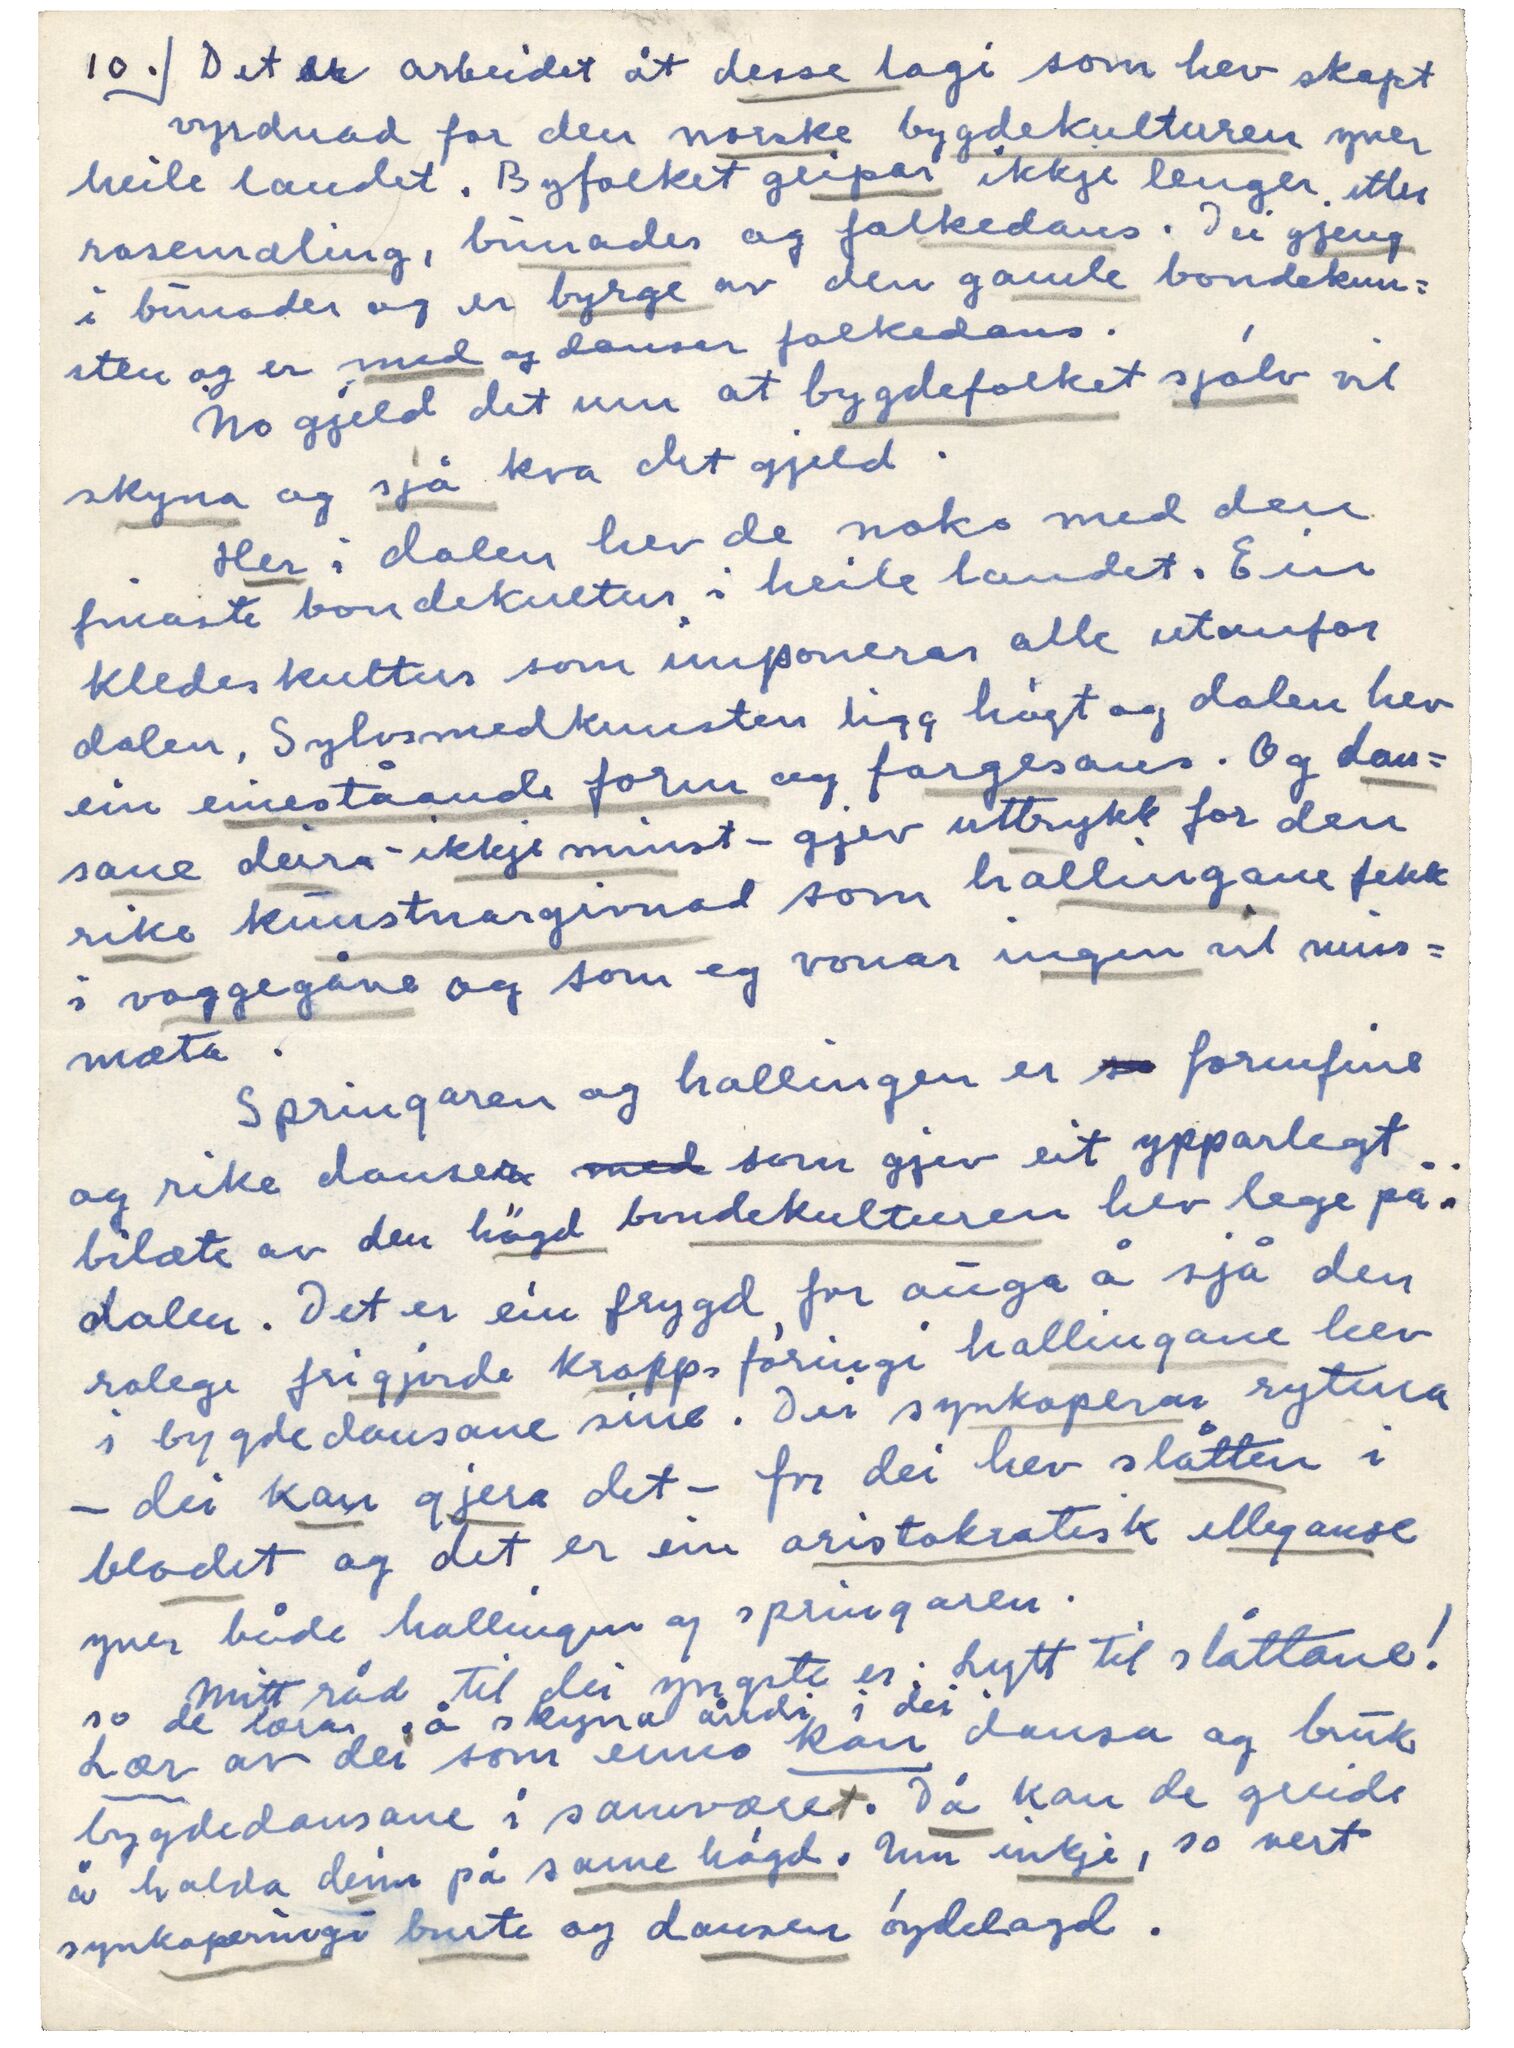 10./ Det er arbeidet åt desse lagi som hev skapt
vyrdnad for den norske bygdekulturen yver
heile landet. Byfolket geipar ikkje lenger etter
rosemåling, bunader og folkedans. Dei gjeng
i bunader og er byrge av den gamle bondekun=
sten og er med og dansar folkedans.
No gjeld det um at bygdefolket sjølv vil
skyna og sjå kva det gjeld.
Her i dalen hev de noko med den
finaste bondekultur i heile landet. Ein
kledeskultur som imponerar alle utanfor
dalen, Sylvsmedkunsten ligg høgt og dalen hev
ein eineståande form og fargesans. Og dan=
sane deira - ikkje minst - gjev uttrykk for den
rike kunstnargivnad som hallingane fekk
i voggegåve og som eg vonar ingen vil mis=
mæta.
Springaren og hallingen er so formfine
og rike dansar med som gjev eit ypparlegt
bilæte av den högd bondekulturen hev lege på i
dalen. Det er ein frygd for auga å sjå den
rolege frigjorde kroppsföringi hallingane hev
i bygdedansane sine. Dei synkoperar rytma
- dei kan gjera det - for dei hev slåtten i
blodet og det er ein aristokratisk elleganse
yver både hallingen og springaren.
Mitt råd til dei yngste er: Lytt til slåttane!
so de lærar å skyna åndi i dei
Lær av dei som enno kan dansa og bruk
bygdedansane i samværet. Då kan de greide
å halda deim på same högd. Um inkje, so vert
synkoperingi burte og dansen öydelagd.